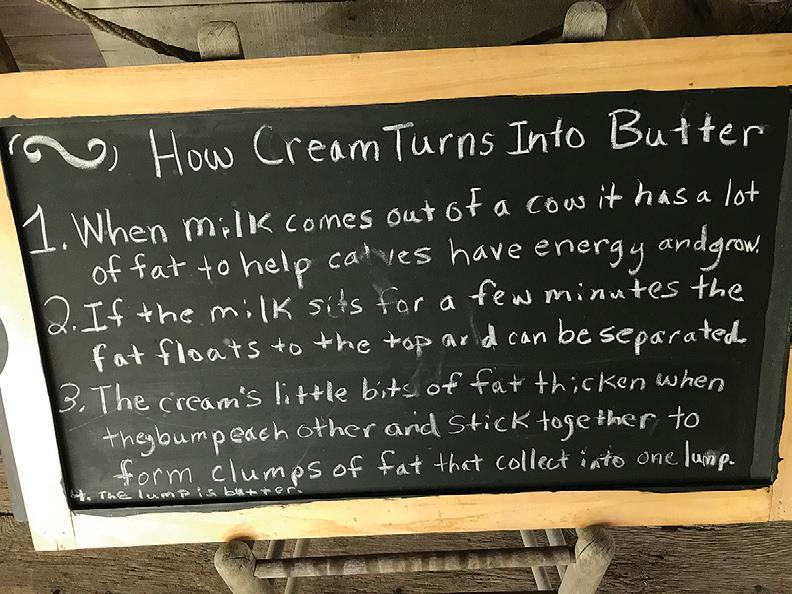 How Cream Turns Into Butter
1. When milk comes out of a cow it has a lot
of fat to help calves have energy and grow.
2. If the milk sits for a few minutes the
fat floats to the top and can be separated.
3. The cream's little bits of fat thicken when
they bump each other and stick together to
form clumps of fat that collect into one lump.
4. The lump is butter.